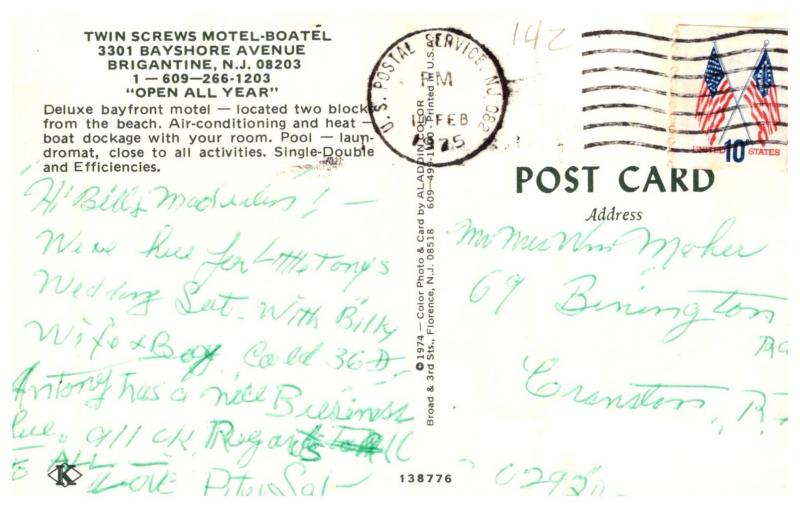 TWIN SCREWS MOTEL-BOATEL
3301 BAYSHORE AVENUE
BRIGANTINE, N.J. 08203
1 — 609—266-1203
"OPEN ALL YEAR"
Deluxe bayfront motel — located two block
from the beach. Air-conditioning and heat —
boat dockage with your room. Pool — laun-
dromat, close to all activities. Single-Double
and Efficiencies.
Hi Billy ! —
We're here for Little Tony's
Wedding Sat. With Billy
Wife & Boy. Cold 36
Antony has a nice Business
here. all ok Regards
TO ALL
Love Sal
K
© 1974 — Color Photo & Card by ALADDIN COLOR
Broad & 3rd Sts., Florence, N.J. 08518 Printed in U.S.A.
138776
142
U.S. POSTAL SERVICE, NJ 082
PM
FEB
1975
UNITED STATES
10¢
POST CARD
Address
Mr Mrs Wm Maher
69 Binington
Cranston, R.